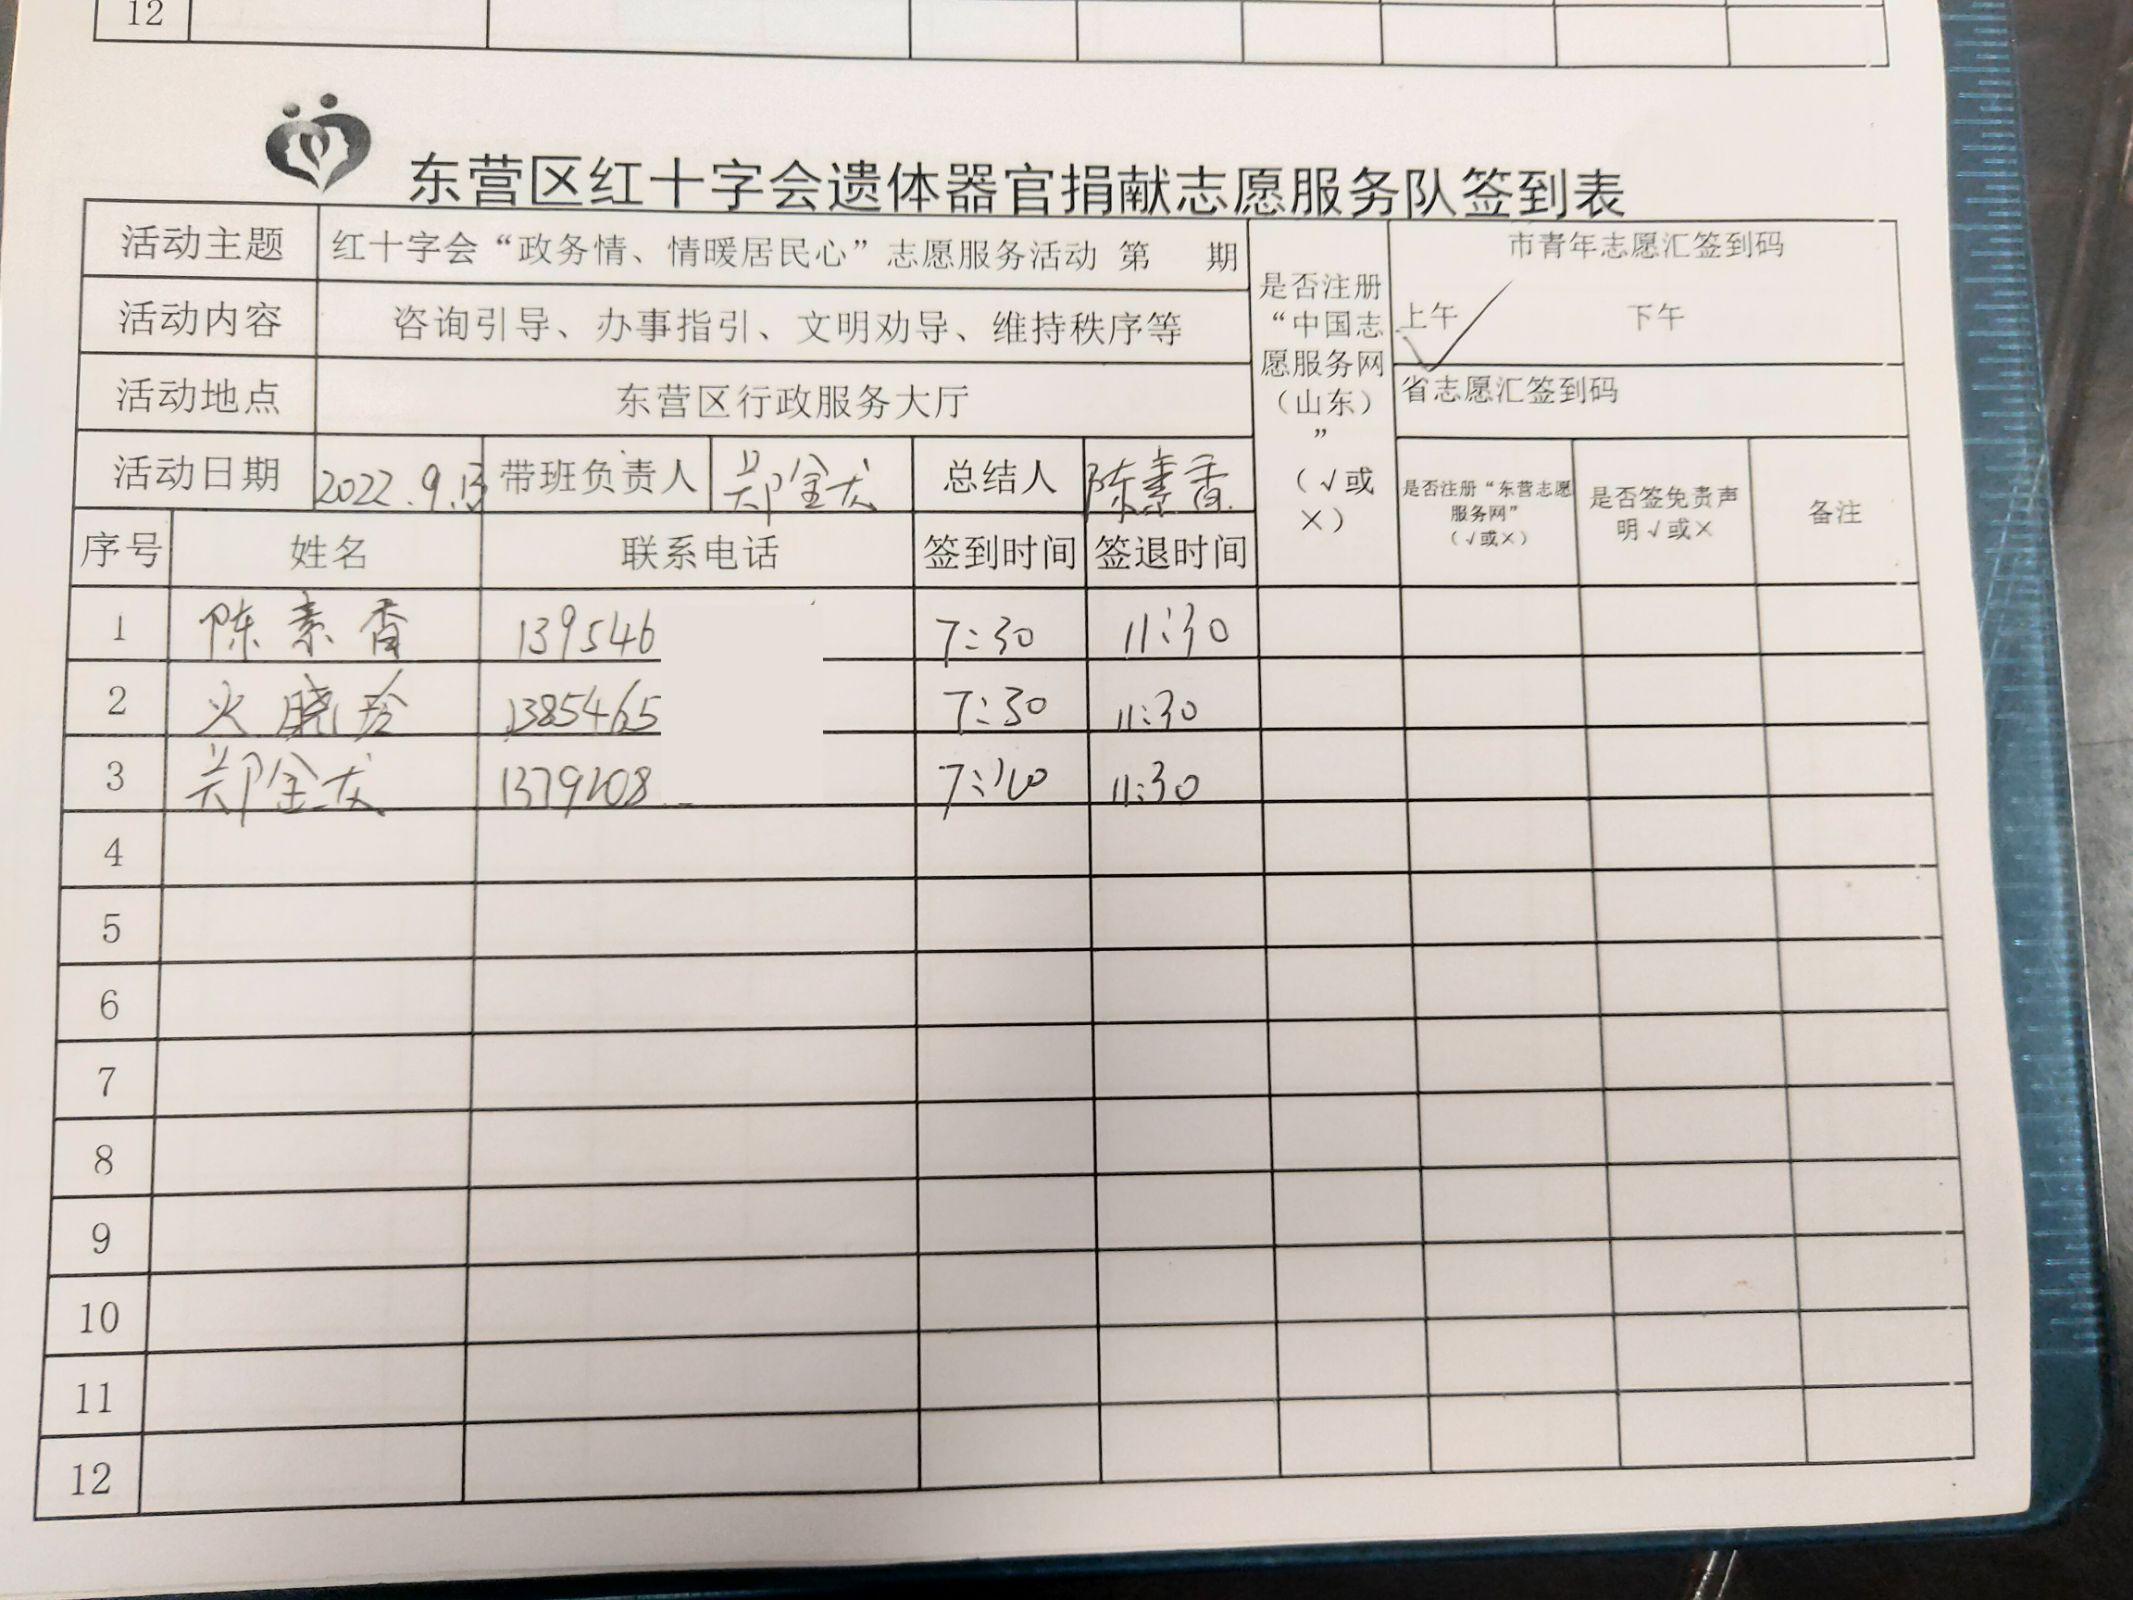 12
东营区红十字会遗体器官捐献志愿服务队签到表
活动主题 红十字会“政务情、情暖居民心”志愿服务活动 第 期
活动内容 咨询引导、办事指引、文明劝导、维持秩序等
活动地点 东营区行政服务大厅
活动日期 2022.9.13 带班负责人 郑金龙 总结人 陈素香
是否注册
“中国志
愿服务网
（山东）
”
（√或
×）
市青年志愿汇签到码
上午 √ 下午
省志愿汇签到码
是否注册“东营志愿
服务网”
（√或×）
是否签免责声
明√或×
备注
序号 姓名 联系电话 签到时间 签退时间
1 陈素香 139546 7:30 11:30
2 火晓玲 1385465 7:30 11:30
3 郑金龙 1379208 11:30
4
5
6
7
8
9
10
11
12